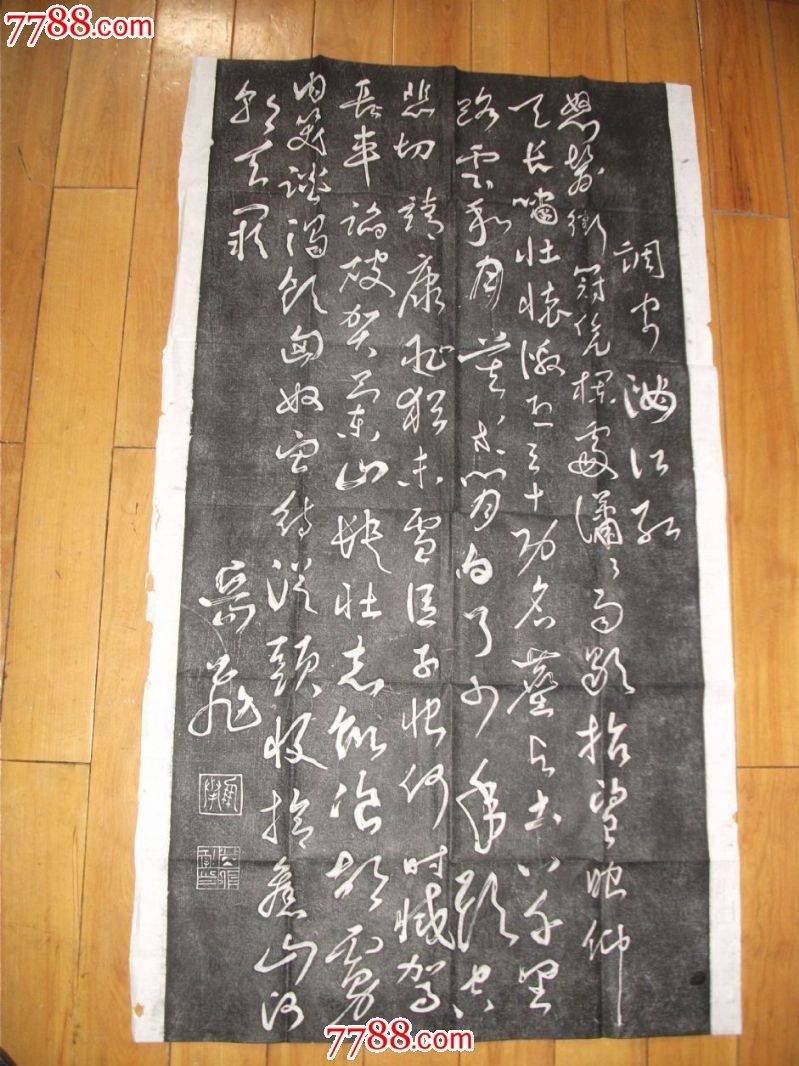 7788.com
7788.com
調寄滿江紅
怒髮衝冠凭欄處瀟〻雨歇抬望眼仰
天長嘯壯懷激烈三十功名塵與土八千里
路雲和月莫等閒白了少年頭空
悲切靖康恥猶未雪臣子恨何時滅駕
長車踏破賀蘭山缺壯志飢飡胡虜
肉笑談渴飲匈奴血待從頭收拾舊山河
朝天闕
岳飛
7788.com